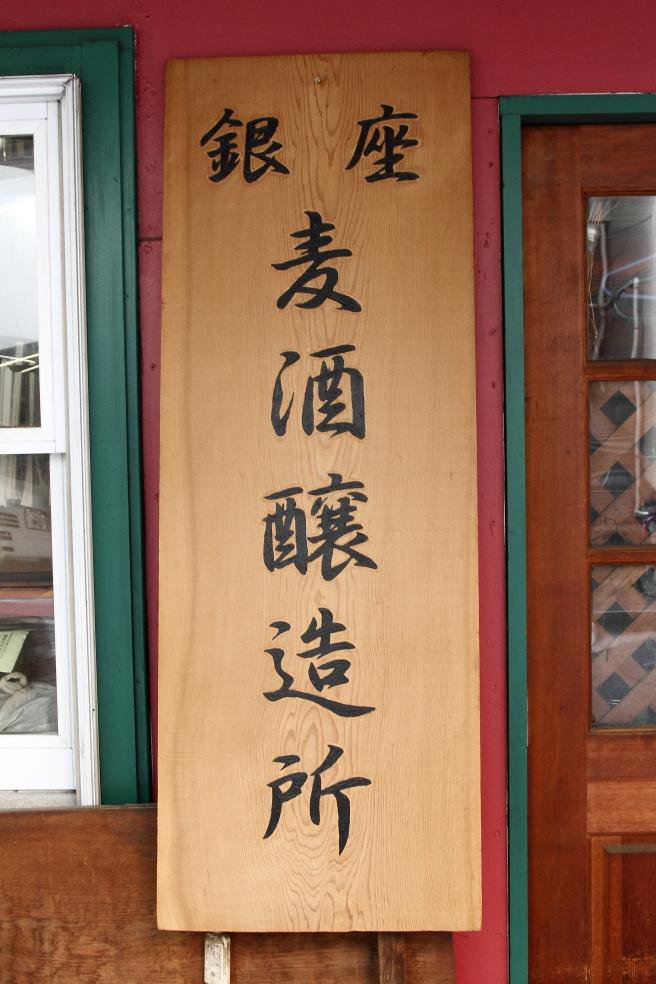 銀座
麦酒醸造所